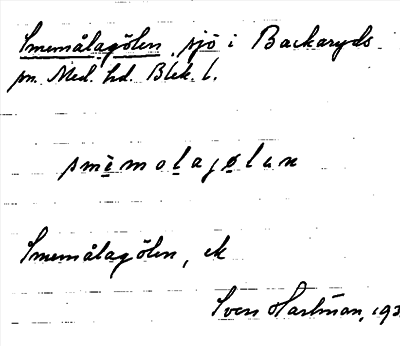 Smemålagölen, sjö i Backaryds
sn. Med. hd. Blek. l.
smemolagølan
Smemålagölen, ek
Sven Hartman, 193